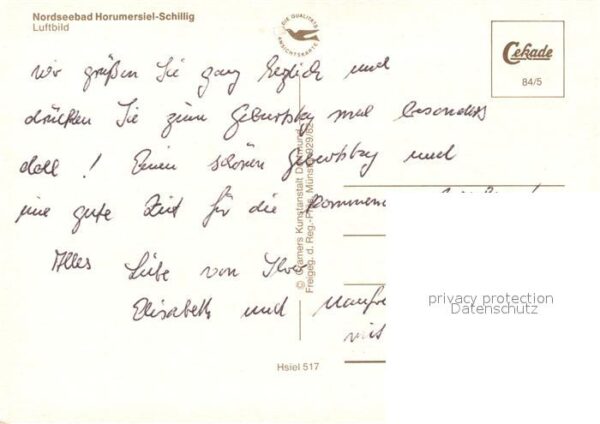 Nordseebad Horumersiel-Schillig
Luftbild
DIE QUALITÄTS
ANSICHTSKARTE
Cekade
84/5
wir grüßen Sie ganz herzlich und
drücken Sie zum Geburtstag mal besonders
doll! Einen schönen Geburtstag und
eine gute Zeit für die kommen
Alles Liebe von Ihrer
Elisabeth und Manfre
mit
© Cramers Kunstanstalt Dortmund
Freigeg. d. Reg.-Präs. Münster
Hsiel 517
privacy protection
Datenschutz